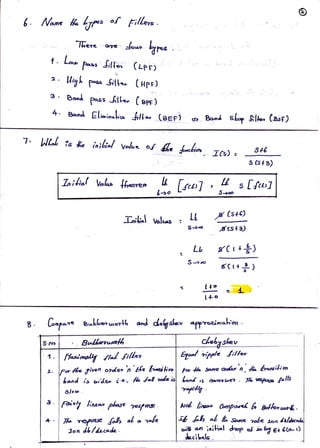 6. Name the types of Filters.
There are four types.
1. Low pass filter (LPF)
2. High pass filter (HPF)
3. Band pass filter (BPF)
4. Band Elimination filter (BEF) or Band stop filter (BSF)
7. What is the initial value of the function I(s) = s+6 / s(s+3)
Initial Value theorem Lt t→0 [f(t)] = Lt s→∞ s[f(s)]
Initial Value = Lt s→∞ s(s+6) / s(s+3)
= Lt s→∞ s(1+6/s) / s(1+3/s)
= 1+0 / 1+0 = 1
8. Compare Butterworth and chebyshev approximation.
S.No Butterworth chebyshev
1. Maximally flat filter Equal ripple filter
2. For the given order 'n' the transition For the same order 'n', the transition
band is wider i.e. the fall rate is band is narrower. The response falls
slow rapidly.
3. Fairly linear phase response Not linear compared to Butterworth.
4. The response falls at a rate It falls at the same rate 20n db/decade
20n db/decade. with an initial drop of
decibels